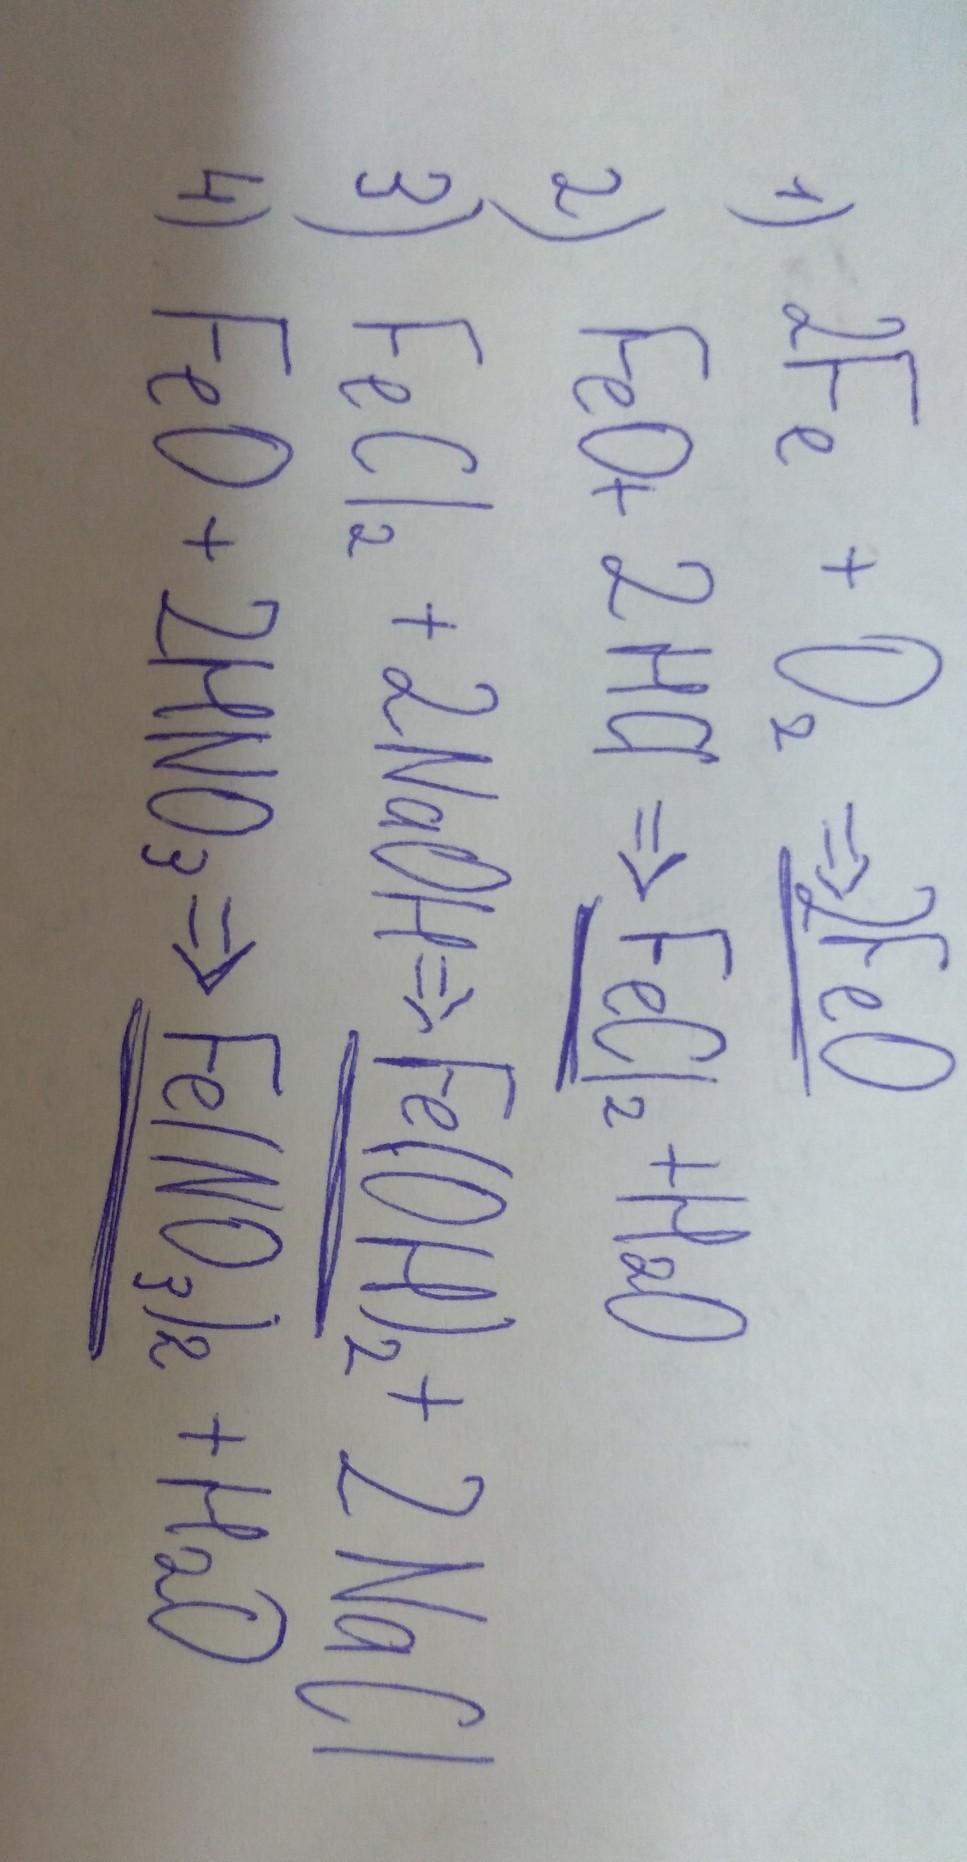 1) 2Fe + O₂ ⇒ 2FeO
2) FeO + 2HCl ⇒ FeCl₂ + H₂O
3) FeCl₂ + 2NaOH ⇒ Fe(OH)₂ + 2NaCl
4) FeO + 2HNO₃ ⇒ Fe(NO₃)₂ + H₂O